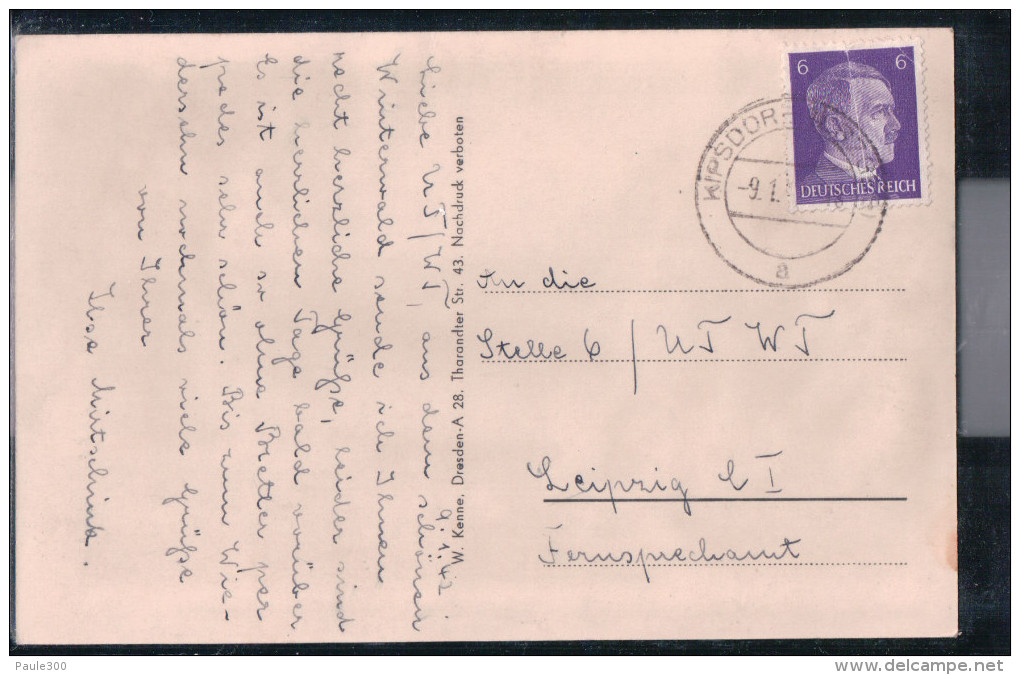 9.1.42
Liebe UT/WT, aus dem schönen
Winterwald sende ich Ihnen
recht herzliche Grüße, leider sind
die herrlichen Tage bald vorüber
Es ist auch so ohne Bretter per
pedes sehr schön. Bis zum Wie-
dersehn nochmals viele Grüße
von Ihrer
Ilse
W. Kenne, Dresden-A 28. Tharandter Str. 43. Nachdruck verboten
6 6
DEUTSCHES REICH
KIPSDORF
-9.1.
a
An die
Stelle 6 / UT WT
Leipzig C I
Fernsprechamt
Paule300
www.delcampe.net